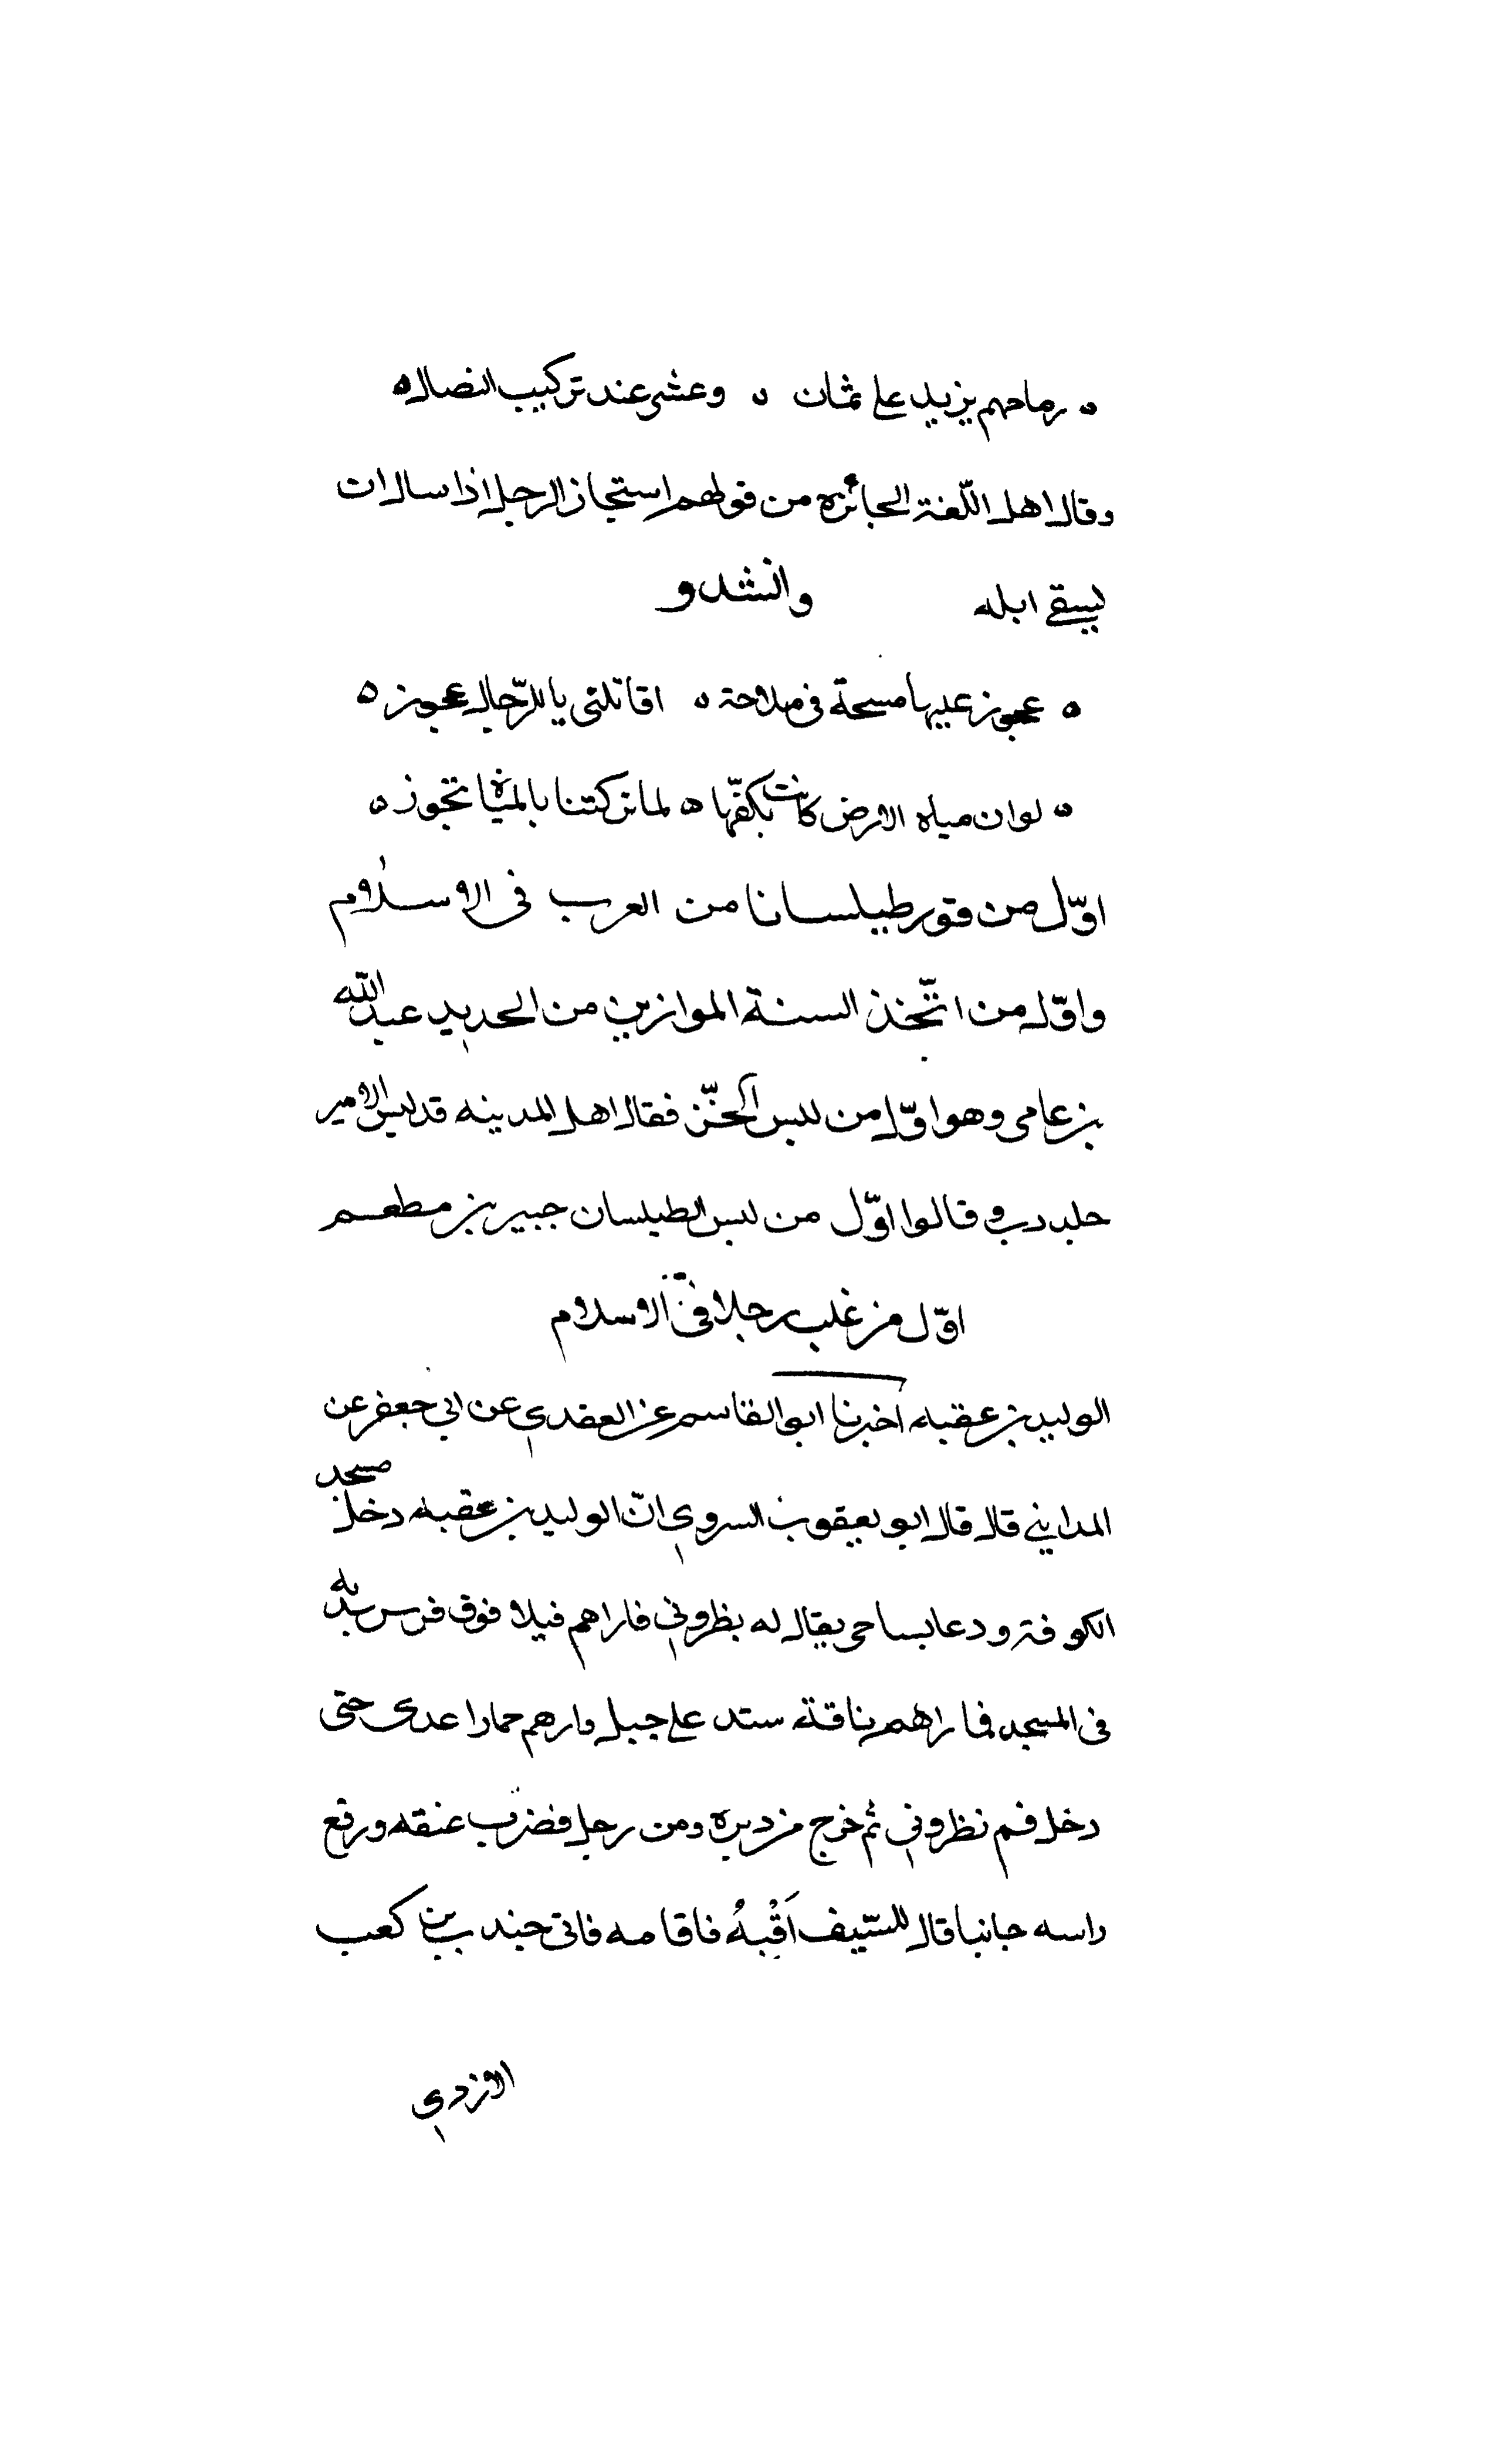 ه رماحهم يزيد على ثمان ه وعشر عند تركيب النصال ه
وقال اهل اللّغة الجائزه من قولهم استجاز الرجل اذا سال ان
ليسقى ابله وانشدو
ه عجوز عليها مسحة فى ملاحة ه اقاتلتى يا للرّجال عجوز ه
ه لو ان مياه الارض كانت بكفّها ه لما تركتنا بالمياه تجوز ه
اوّل من قور طيلسانا من العرب فى الاسلام
واوّل من اتّخذ السنة الموازين من الحديد عبد الله
بن عامر وهو اوّل من لبس الخزّ فقال اهل المدينه قد لبس الامير
جلد دب وقالوا اوّل من لبس الطيلسان جبير بن مطعم
اوّل من غلب رجلا فى الاسلام
الوليد بن عقبه اخبرنا ابو القاسم عن العقدي عن ابي جعفر عن
المدايني قال قال ابو يعقوب السروي انّ الوليد بن عقبه دخل مسجد
الكوفة ودعا بساحر يقال له بطروني فاراهم فيلا فوق فرس يديه
فى المسجد فاراهم ناقة ستد على جبل وارهم حمارا عدى حتى
دخل فم نظروني ثم خرج من دبره ومن رجل فضرب عنقه ورفع
راسه جانبا قال للسّيف اَقْبِهُ فاقامه فاتى جندب بن كعب
الازدي